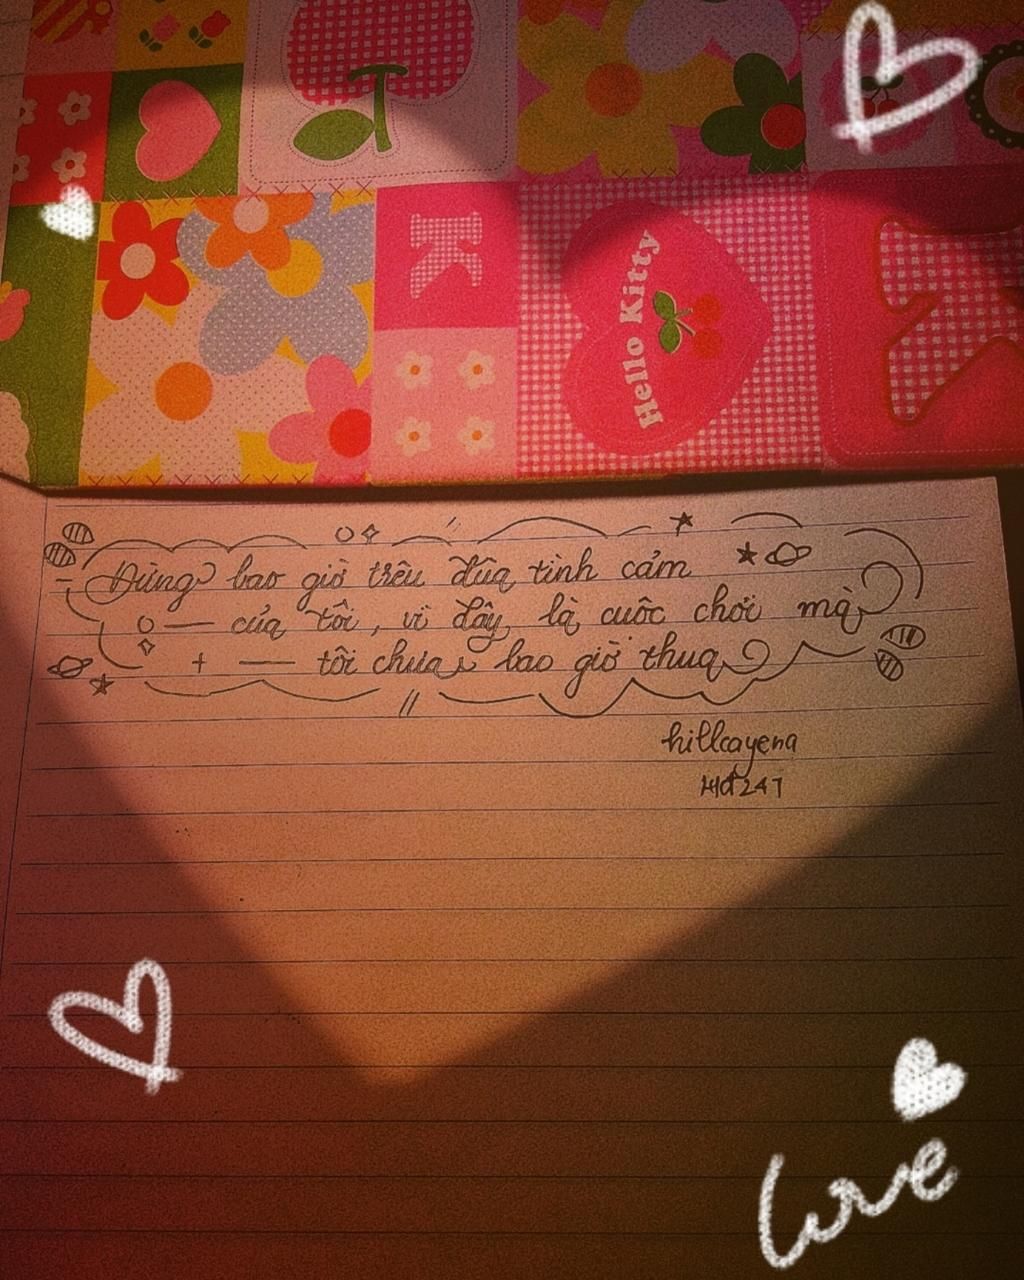 K
Hello Kitty
Đừng bao giờ trêu đùa tình cảm
của tôi, vì đây là cuộc chơi mà
tôi chưa bao giờ thua
hillcayena
love